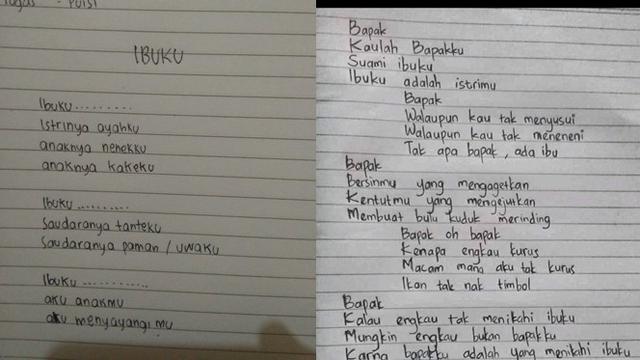 Tugas - Puisi
IBUKU
Ibuku.........
Istrinya ayahku
anaknya nenekku
anaknya kakeku
Ibuku..........
Saudaranya tanteku
Saudaranya paman / uwaku
Ibuku.............
aku anakmu
aku menyayangi mu
Bapak
Kaulah Bapakku
Suami ibuku
Ibuku adalah istrimu
Bapak
Walaupun kau tak menyusui
Walaupun kau tak meneneni
Tak apa bapak, ada ibu
Bapak
Bersinmu yang mengagetkan
Kentutmu yang mengejutkan
Membuat bulu kuduk merinding
Bapak oh bapak
Kenapa engkau kurus
Macam mana aku tak kurus
Ikan tak nak timbol
Bapak
Kalau engkau tak menikahi ibuku
Mungkin engkau bukan bapakku
Karna bapakku adalah yang menikahi ibuku